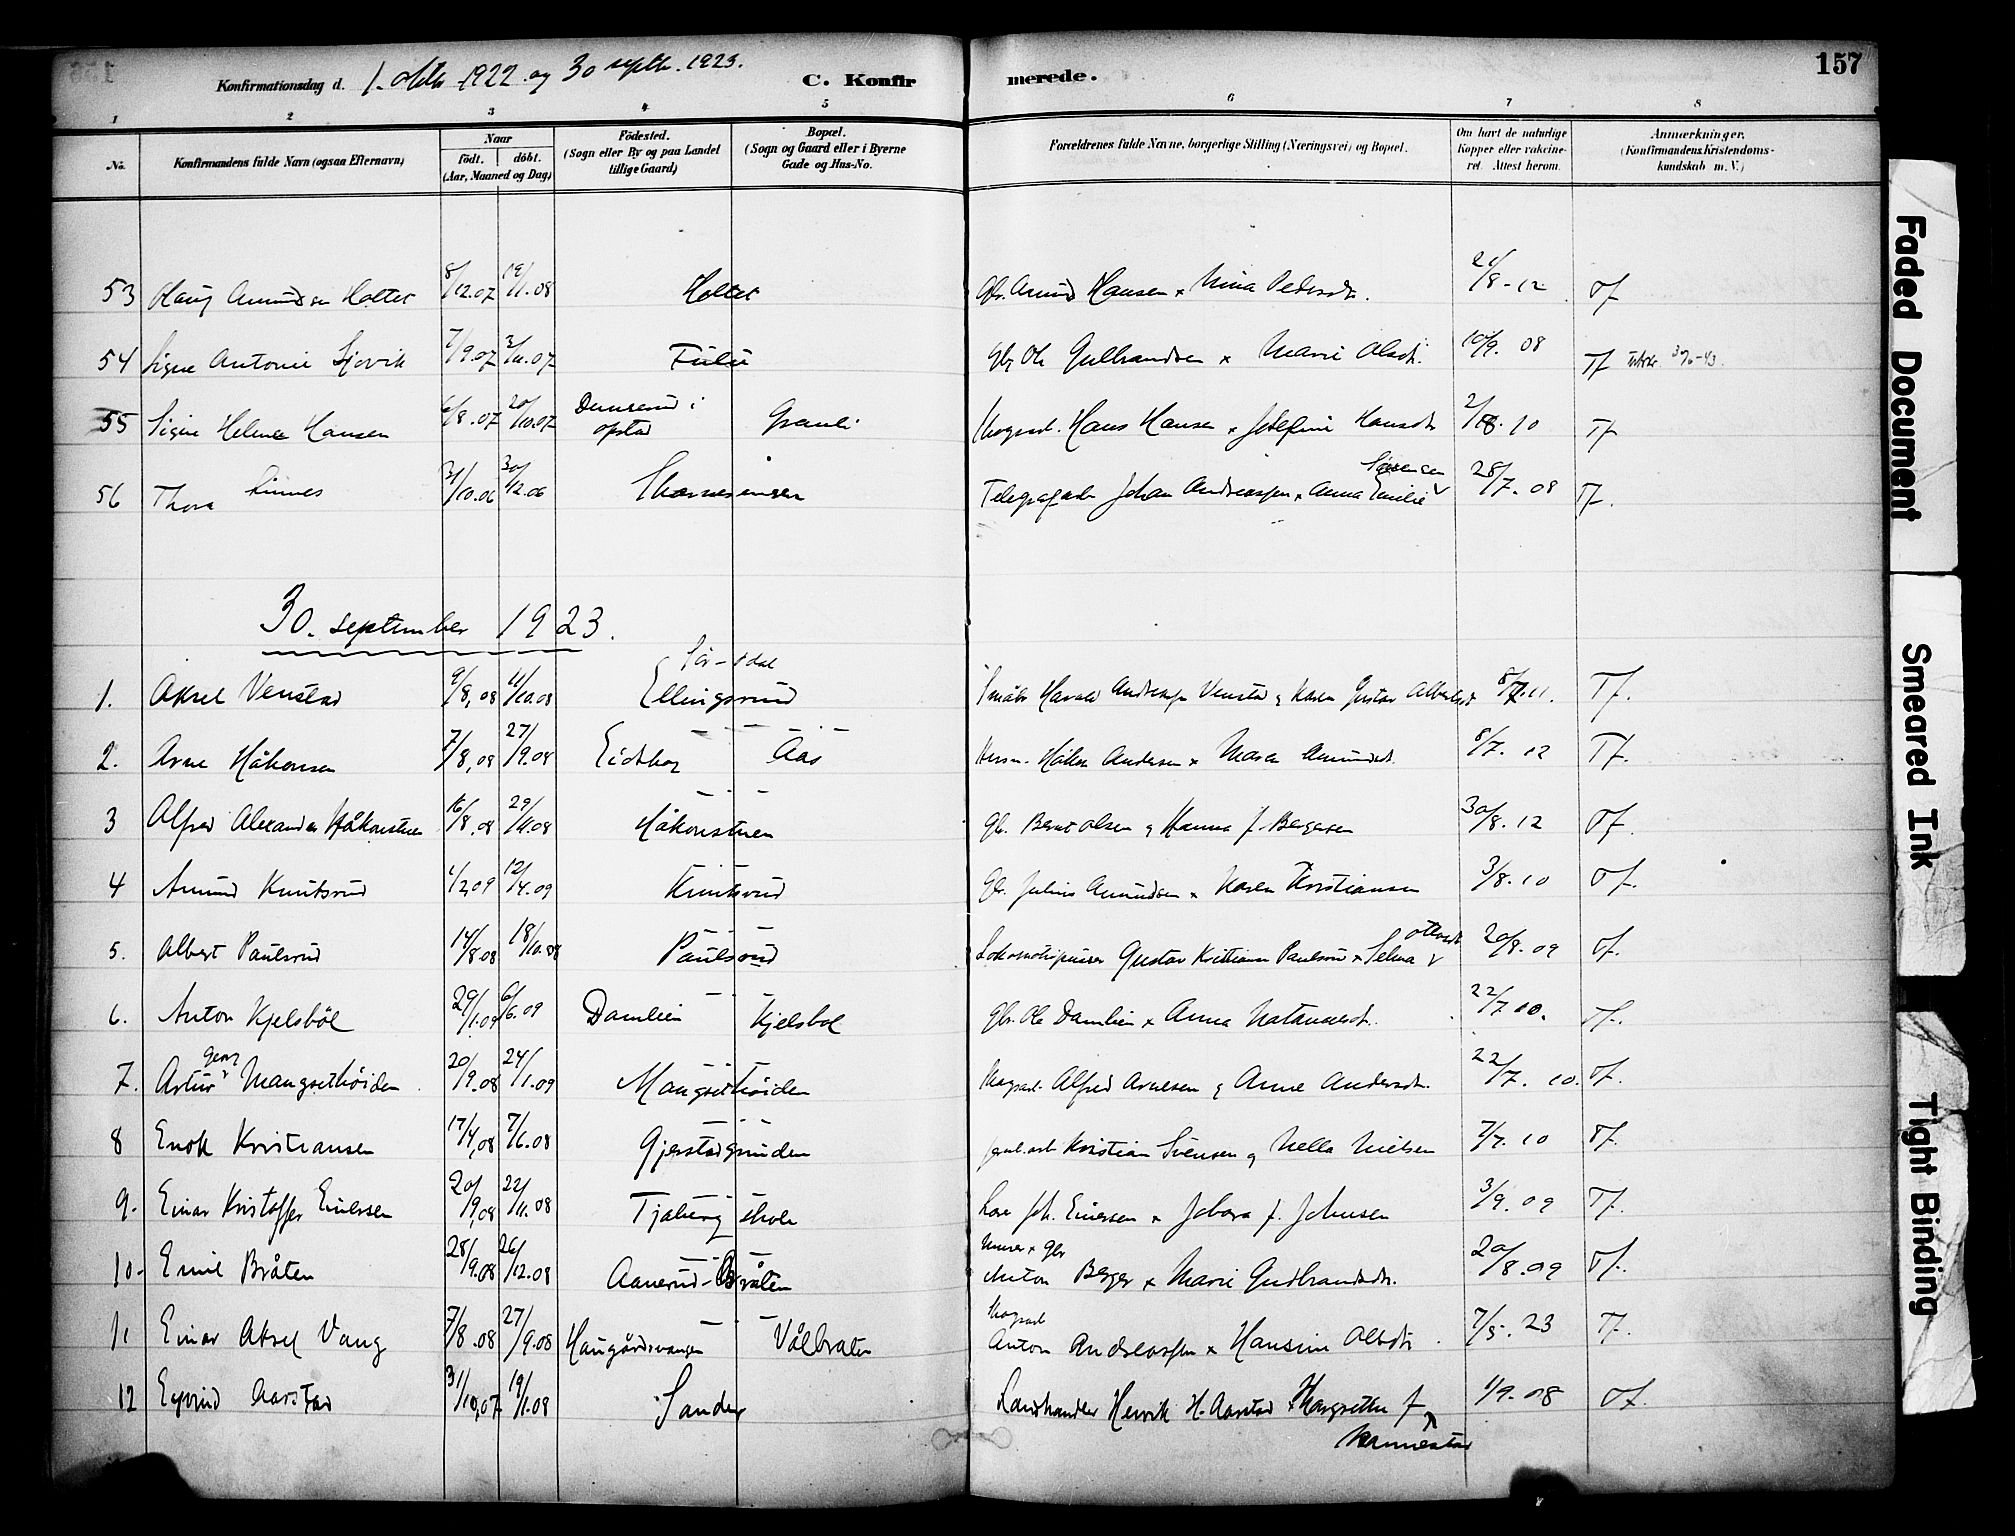 157
Konfirmationsdag d. 1. oktbr. 1922 og 30 septbr. 1923.
C. Konfir merede.
1 2 3 4 5 6 7 8
No.
Konfirmandens fulde Navn (ogsaa Efternavn)
Naar
födt. döbt.
(Aar, Maaned og Dag)
Födested.
(Sogn eller By og paa Landet
tillige Gaard)
Bopæl.
(Sogn og Gaard eller i Byerne
Gade og Hus-No.
Forældrenes fulde Navne, borgerlige Stilling (Næringsvei) og Bopæl.
Om havt de naturlige
Kopper eller vakcine-
ret. Attest herom.
Anmærkninger.
(Konfirmandens Kristendoms-
kundskab m. V.)
53 Amundsen Holter 8/12.07 19/1.08 Holter Gbr. Amund Hansen x Nina Pedersdtr. 21/8-12
54 Signe Antonie Sjovik 7/9.07 3/11.07 Fulu Gbr Ole Gulbrandsen x Marie Olsdtr. 10/9. 08 Tf
55 Signe Helene Hansen 6/8.07 20/10.07 opstad Granli Hans Hansen x Josefine Hansdtr 2/8. 10 Tf
56 Thora Linnes 31/10.06 30/12.06 Skarnesenger Telegrafarb Johan Andreassen x Anna Emilie Sørensen 28/7. 08 Tf.
30. september 1923.
1. Aksel Venstad 9/8,08 11/10.08 Sør-Odal Ellingsrud Småbr Harald Andersen Venstad & Karen Gustav Albertsdtr 8/7.11. Tf.
2. Arne Håkonsen 7/8,08 27/9.08 Eidskog Aas Håkon Andersen x Maren Amundsdtr. 8/7. 12 Tf.
3 Alfred Alexander Håkonstuen 16/8.08 29/11.08 Håkonstuen Gbr. Bernt Olsen & Hanna f. Bergersen 30/8. 12
4 Amund Knutsrud 1/2,09 12/4.09 Knutsrud Gbr. Julius Amundsen x Karen Kristiansen 3/8. 10
5. Albert Paulsrud 14/8.08 18/10.08 Paulsrud Lokomotivpusser Gustav Kristian Paulsrud x Selma Ottersdtr 20/8. 09
6. Anton Kjelsböl 29/1.09 6/6.09 Damlien Kjelsbol Gbr. Ole Damlien x Anna Natanaelsdtr. 22/7 00. Tf.
7. Artur Georg Mangsethöiden 20/9.08 24/1.09 Mangsethöiden Alfred Arnesen & Anne Andersdtr. 22/7. 10.
8 Enok Kristiansen 17/4,08 7/6.08 Gjerstadgrunden Kristian Svensen & Nella Nielsen 7/7. 10
9. Einar Kristoffer Einersen 20/9,08 22/11.08 Tjaberg skole Joh. Einersen x Jobara f. Johnsen 3/9. 09 Tf.
10. Emil Bråten 28/9.08 26/12.08 Aanerud-Bråten Murer x Gbr Anton Berger x Marie Gudbrandsdtr. 20/8.09
11 Einar Aksel Vang 7/8.08 27/9.08 Haugårdsvangen Vålbraten Anton Andreassen x Hansine Olsdtr. 7/5. 23 Tf.
12 Eyvind Aarstad 31/10,07 19/1.08 Sander Landhandler Henrik H. Aarstad x Margrethe f. Kannestad 1/9.08
Faded Document
Smeared Ink
Tight Binding